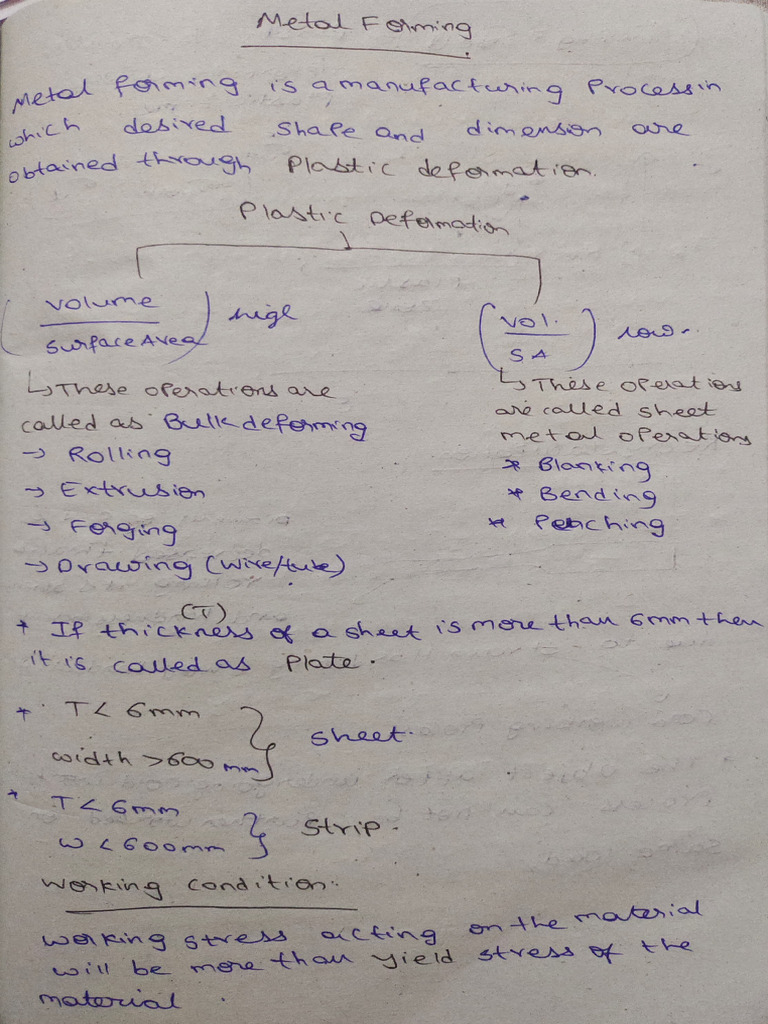 Metal Forming
Metal forming is a manufacturing Process in
which desired shape and dimension are
obtained through Plastic deformation.
Plastic Deformation
(volume / surface Area) high
(vol. / SA) low.
↳ These operations are
called as Bulk deforming
→ Rolling
→ Extrusion
→ Forging
→ Drawing (wire/tube)
↳ These operations
are called sheet
metal operations
* Blanking
* Bending
* Penching
(T)
* If thickness of a sheet is more than 6mm then
it is called as Plate.
* T < 6mm
width > 600 mm } sheet.
* T < 6mm
w < 600mm } Strip.
Working condition:
working stress acting on the material
will be more than yield stress of the
material.